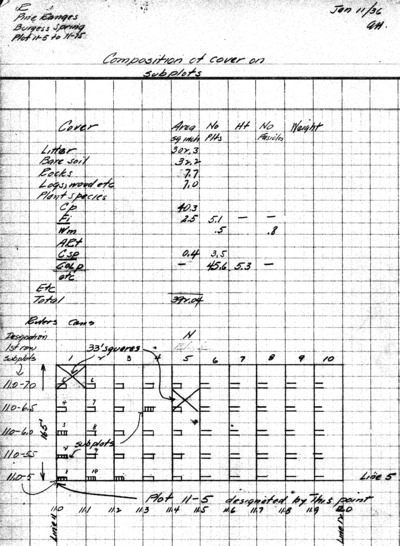 E
Pine Ranges
Burgess Spring
Plot 11-5 to 11-75
Jan 11/36
Composition of cover on
subplots
Cover Area No Ht No Weight
sq inch Plts
Litter 302.3
Bare soil 32.2
Rocks 7.7
Logs, wood etc 7.0
Plant species
Cp 40.3
Fi 2.5 5.1 — —
Wm .5 .8
ARt
Csp 0.4 3.5
— 45.6 5.3 —
etc
Etc
Total 392.04
N
Designation
1st row
subplots
33' squares
1 2 3 4 5 6 7 8 9 10
11.0-7.0
11.0-6.5
11.0-6.0
11.0-5.5
11.0-5
165'
subplots
Line 5
Plot 11-5 designated by this point
11.0 11.1 11.2 11.3 11.4 11.5 11.6 11.7 11.8 11.9 12.0
Line 11
Line 12